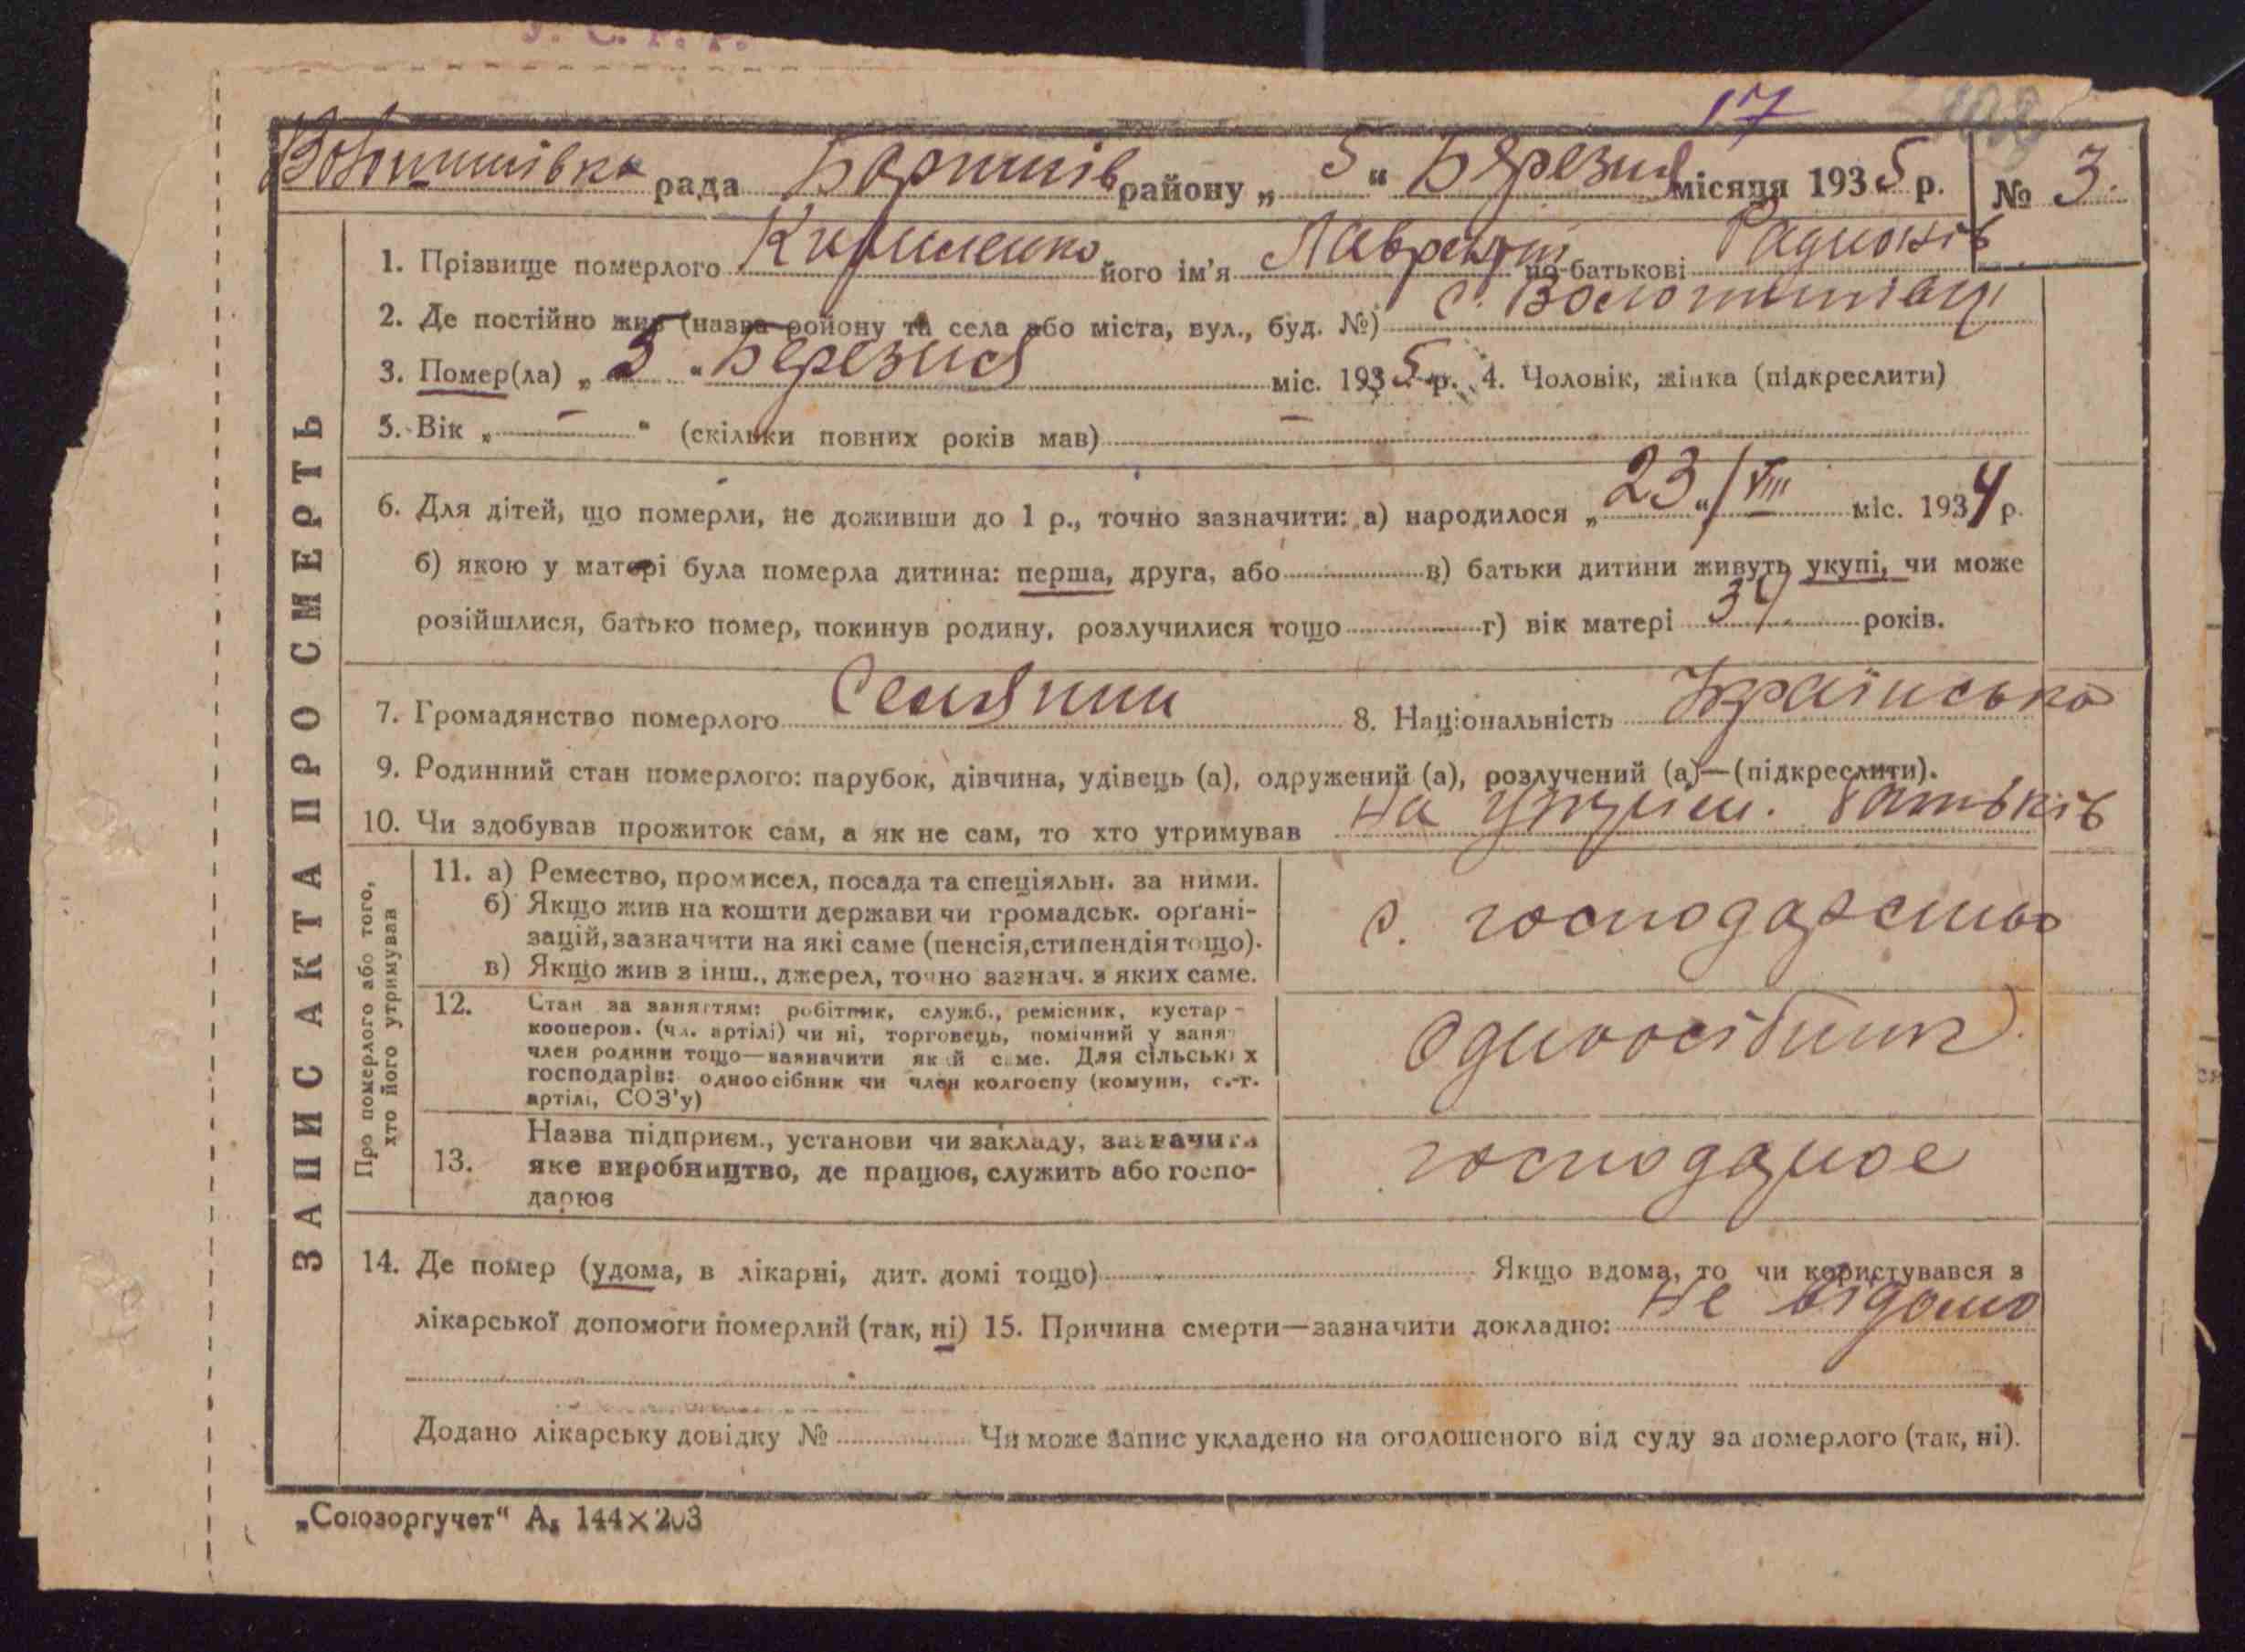 У. С. Р. Р.
17
рада Баришів району „ 5 “ Березня місяця 1935 р. № 3.
1. Прізвище померлого Кириленко його ім'я Лаврентій по-батькові Радионів
2. Де постійно жив (назва району та села або міста, вул., буд. №) с.
3. Помер(ла) „ 3 “ Березня міс. 1935 р. 4. Чоловік, жінка (підкреслити)
5. Вік „ — “ (скільки повних років мав) —
6. Для дітей, що померли, не доживши до 1 р., точно зазначити: а) народилося „ 23 “ / VIII міс. 1934 р.
б) якою у матері була померла дитина: перша, друга, або в) батьки дитини живуть укупі, чи може
розійшлися, батько помер, покинув родину, розлучилися тощо г) вік матері років.
7. Громадянство померлого Селянин 8. Національність Українська
9. Родинний стан померлого: парубок, дівчина, удівець (а), одружений (а), розлучений (а)—(підкреслити).
10. Чи здобував прожиток сам, а як не сам, то хто утримував на утрим. батьків
ЗАПИС АКТА ПРО СМЕРТЬ
Про померлого або того, хто його утримував
11. а) Ремество, промисел, посада та спеціяльн. за ними.
б) Якщо жив на кошти держави чи громадськ. орґані-
зацій, зазначити на які саме (пенсія, стипендія тощо).
в) Якщо жив з інш., джерел, точно зазнач. з яких саме.
с. господарство
12. Стан за заняттям: робітник, служб., ремісник, кустар -
кооперов. (чл. артілі) чи ні, торговець, помічний у занят
член родини тощо—зазначити який саме. Для сільських
господарів: одноосібник чи член колгоспу (комуни, с.-г.
артілі, СОЗ'у)
одноосібник
13. Назва підприєм., установи чи закладу, зазначити
яке виробництво, де працює, служить або госпо-
дарює
господарює
14. Де помер (удома, в лікарні, дит. домі тощо) Якщо вдома, то чи користувався з
лікарської допомоги померлий (так, ні) 15. Причина смерти—зазначити докладно: не відомо
Додано лікарську довідку № Чи може запис укладено на оголошеного від суду за померлого (так, ні).
„Союзоргучет“ А₅ 144×203